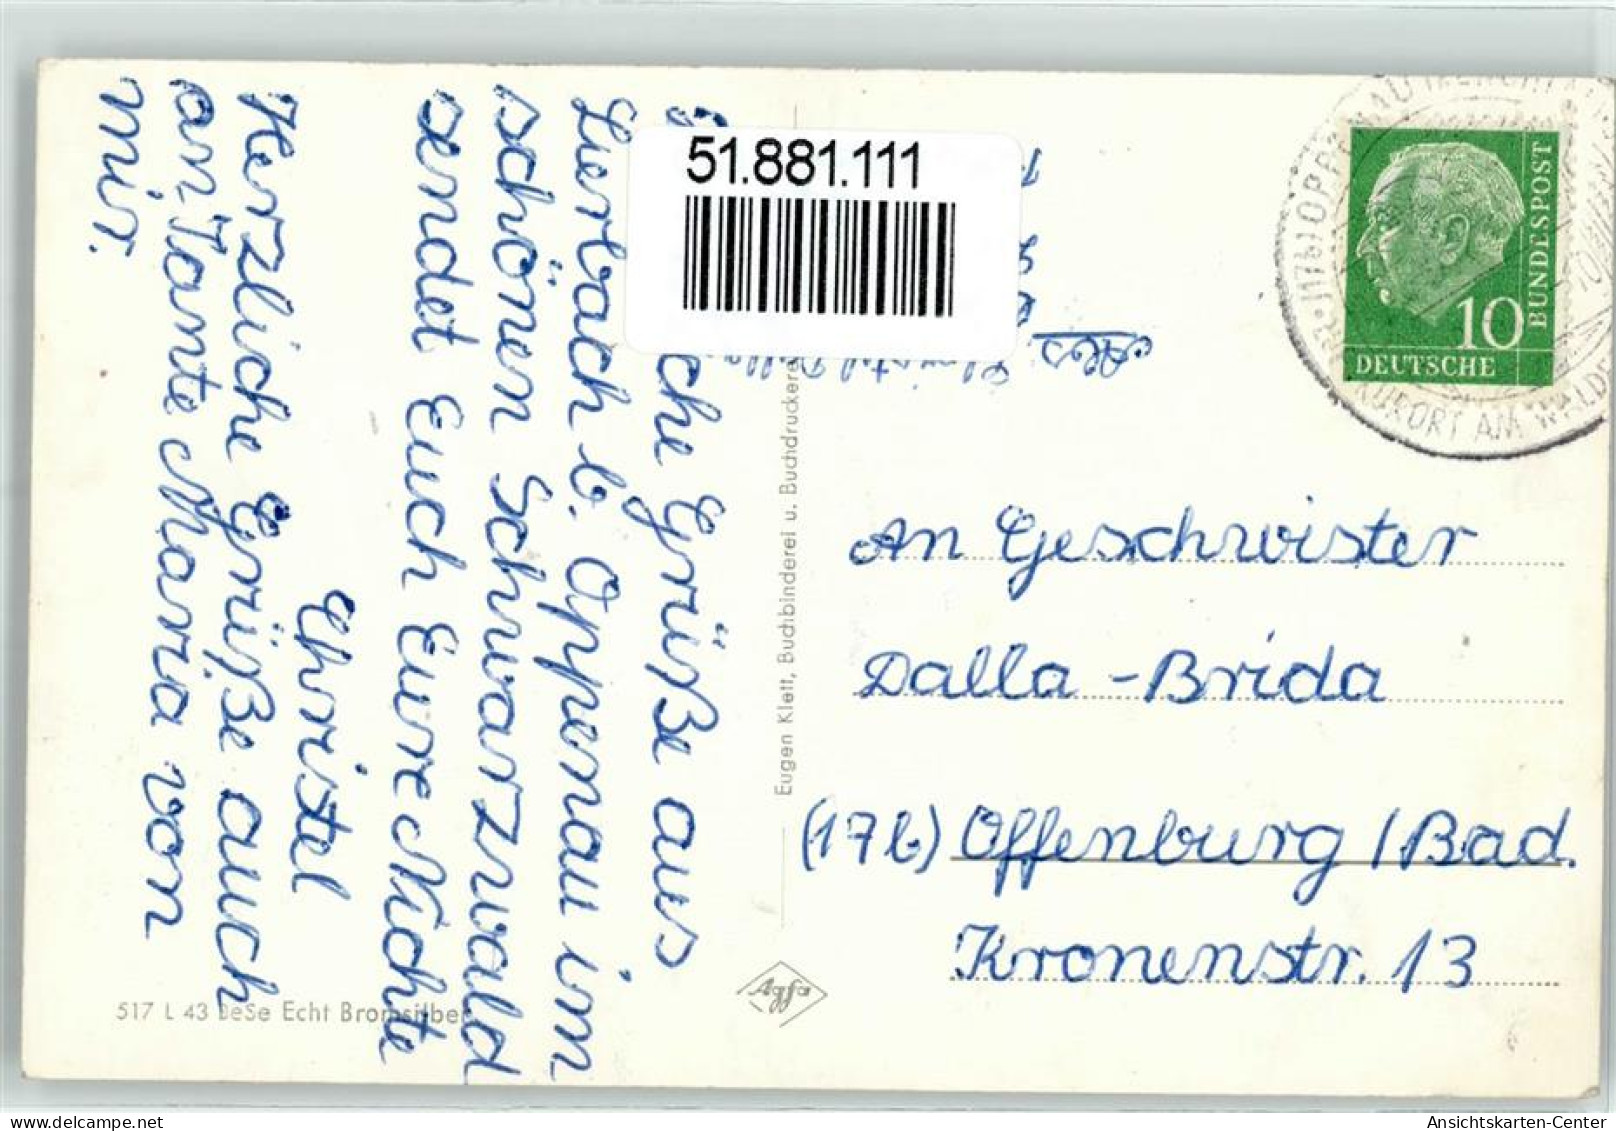 51.881.111
che Grüße aus
Lierbach b. Oppenau im
schönen Schwarzwald
sendet Euch Eure Nichte
Christel
Herzliche Grüße auch
an Tante Maria von
mir.
Abs.
Eugen Klett, Buchbinderei u. Buchdruckerei
517 L 43 BeSe Echt Bromsilber
Agfa
(17b) OPPENAU
KURORT AM WALDE
BUNDESPOST
10
DEUTSCHE
An Geschwister
Dalla-Brida
(17b) Offenburg / Bad.
Kronenstr. 13
delcampe.net
Ansichtskarten-Center